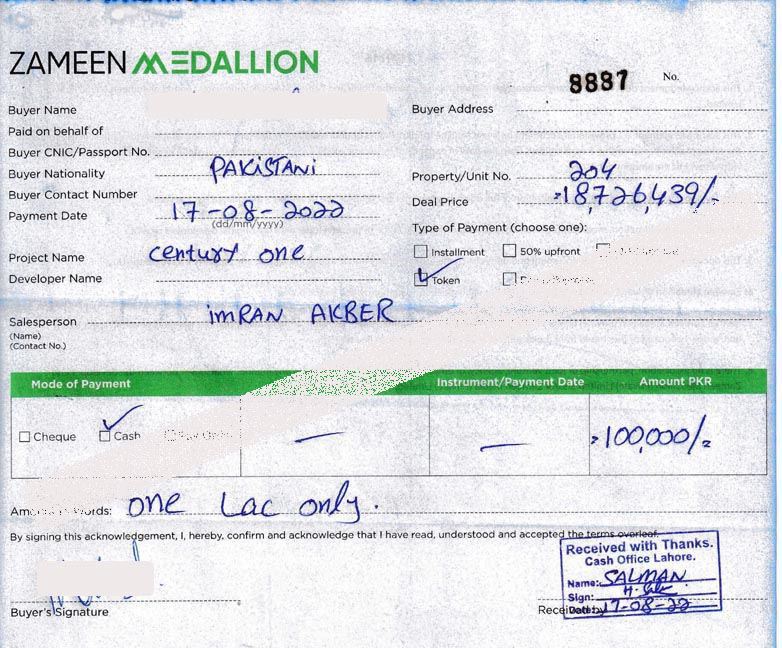 ZAMEEN MEDALLION
8887 No.
Buyer Name
Buyer Address
Paid on behalf of
Buyer CNIC/Passport No.
Buyer Nationality PAKISTANi
Property/Unit No. 204
Buyer Contact Number
Deal Price =18,726,439/-
Payment Date 17-08-2022
(dd/mm/yyyy)
Type of Payment (choose one):
Project Name century one
Installment 50% upfront
Developer Name
Token
Salesperson imRAN AKBER
(Name)
(Contact No.)
Mode of Payment Instrument/Payment Date Amount PKR
Cheque Cash — — =100,000/=
Words: one Lac only.
By signing this acknowledgement, I, hereby, confirm and acknowledge that I have read, understood and accepted the terms overleaf.
Received with Thanks.
Cash Office Lahore.
Name: SALMAN
Sign:
Date: 17-08-22
Buyer's Signature
Received by